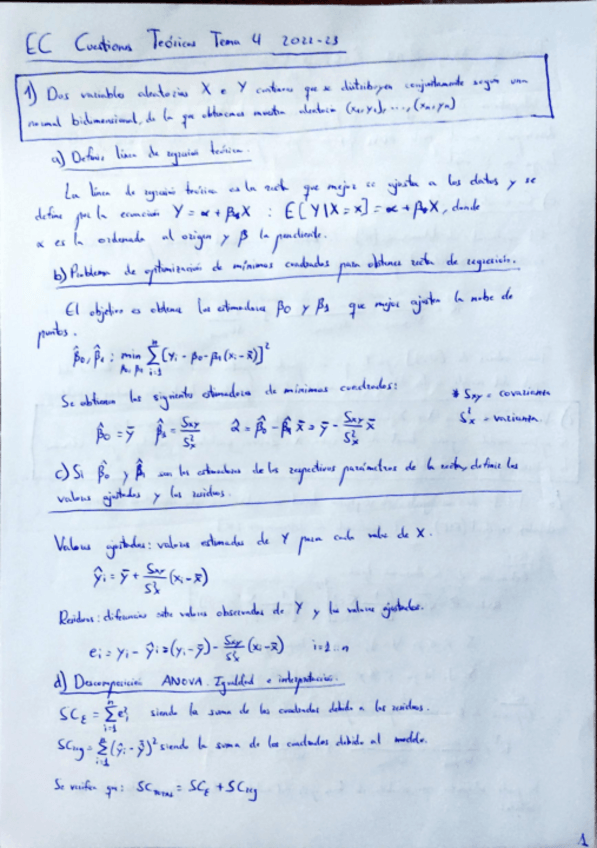 EC Cuestiones Teóricas Tema 4 2022-23
1) Dos variables aleatorias X e Y continuas que se distribuyen conjuntamente según una
normal bidimensional, de la que obtenemos muestra aleatoria (x₁,y₁), ..., (xₙ,yₙ)
a) Definir línea de regresión teórica.
La línea de regresión teórica es la recta que mejor se ajusta a los datos y se
define por la ecuación Y = α + β₁X : E[Y|X=x] = α + β₁X, donde
α es la ordenada al origen y β la pendiente.
b) Problema de optimización de mínimos cuadrados para obtener recta de regresión.
El objetivo es obtener los estimadores β0 y β1 que mejor ajusten la nube de
puntos.
β̂0, β̂1 : min β0, β1 Σ i=1 n [yi - β0 - β1(xi - x̄)]²
Se obtienen los siguientes estimadores de mínimos cuadrados:
* Sxy = covarianza
β̂0 = ȳ β̂1 = Sxy/S²x α̂ = β̂0 - β̂1 x̄ = ȳ - Sxy/S²x x̄
S²x = varianza
c) Si β̂0 y β̂1 son los estimadores de los respectivos parámetros de la recta, definir los
valores ajustados y los residuos.
Valores ajustados: valores estimados de Y para cada valor de X.
ŷi = ȳ + Sxy/S²x (xi - x̄)
Residuos: diferencias entre valores observados de Y y los valores ajustados.
ei = yi - ŷi = (yi - ȳ) - Sxy/S²x (xi - x̄) i=1..n
d) Descomposición ANOVA. Igualdad e interpretación.
SC_E = Σ i=1 n e²i siendo la suma de los cuadrados debido a los residuos.
SCreg = Σ i=1 n (ŷi - ȳ)² siendo la suma de los cuadrados debido al modelo.
Se verifica que: SCtotal = SC_E + SCreg
1